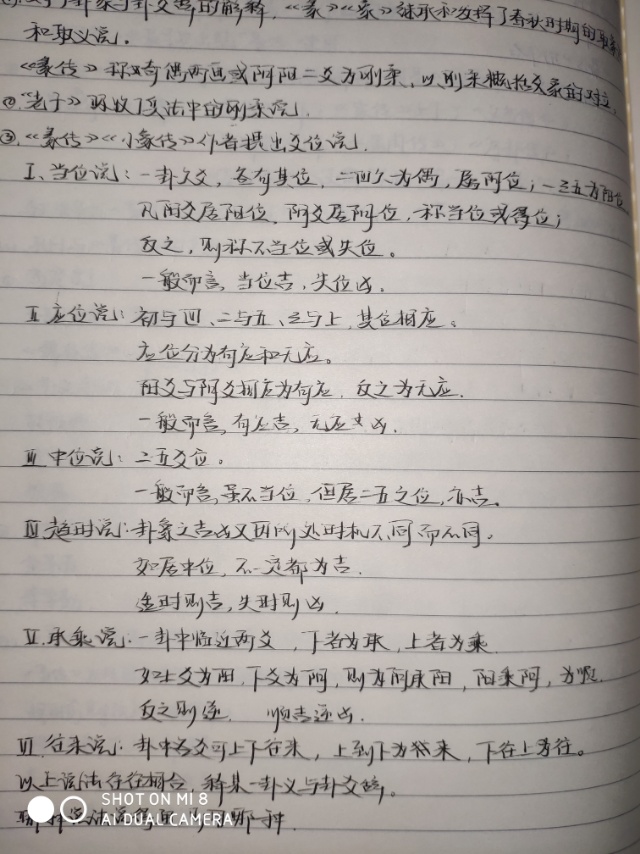 对于卦象与卦爻辞的解释，《彖》《象》继承和发挥了春秋时期的取象
和取义说.
《彖传》称奇偶两画或阴阳二爻为刚柔，以刚柔概括爻象的对立.
②《老子》吸收了类法中的刚柔说.
③《彖传》《小象传》作者提出爻位说.
I.当位说：一卦六爻，各有其位，二四六为偶，居阴位；一三五为阳位
凡阳爻居阳位，阴爻居阴位，称当位或得位；
反之，则称不当位或失位。
一般而言，当位吉，失位凶.
II 应位说：初与四、二与五、三与上，其位相应。
应位分为有应和无应。
阳爻与阴爻相应为有应，反之为无应.
一般而言，有应吉，无应步凶.
III 中位说：二五爻位。
一般而言，虽不当位，但居二五之位，亦吉。
IIII 趋时说：卦象之吉凶又因所处时机不同而不同。
如居中位，不一定都为吉.
合时则吉，失时则凶.
V.承乘说：一卦中临近两爻，下者为承，上者为乘
如上爻为阳，下爻为阴，则为阴承阳，阳乘阴，为顺.
反之则逆. 顺吉逆凶.
VI 往来说：卦中各爻可上下往来，上到下为来，下往上为往。
以上说法往往相合，释某一卦义与卦爻辞。
哪种
SHOT ON MI 8
AI DUAL CAMERA